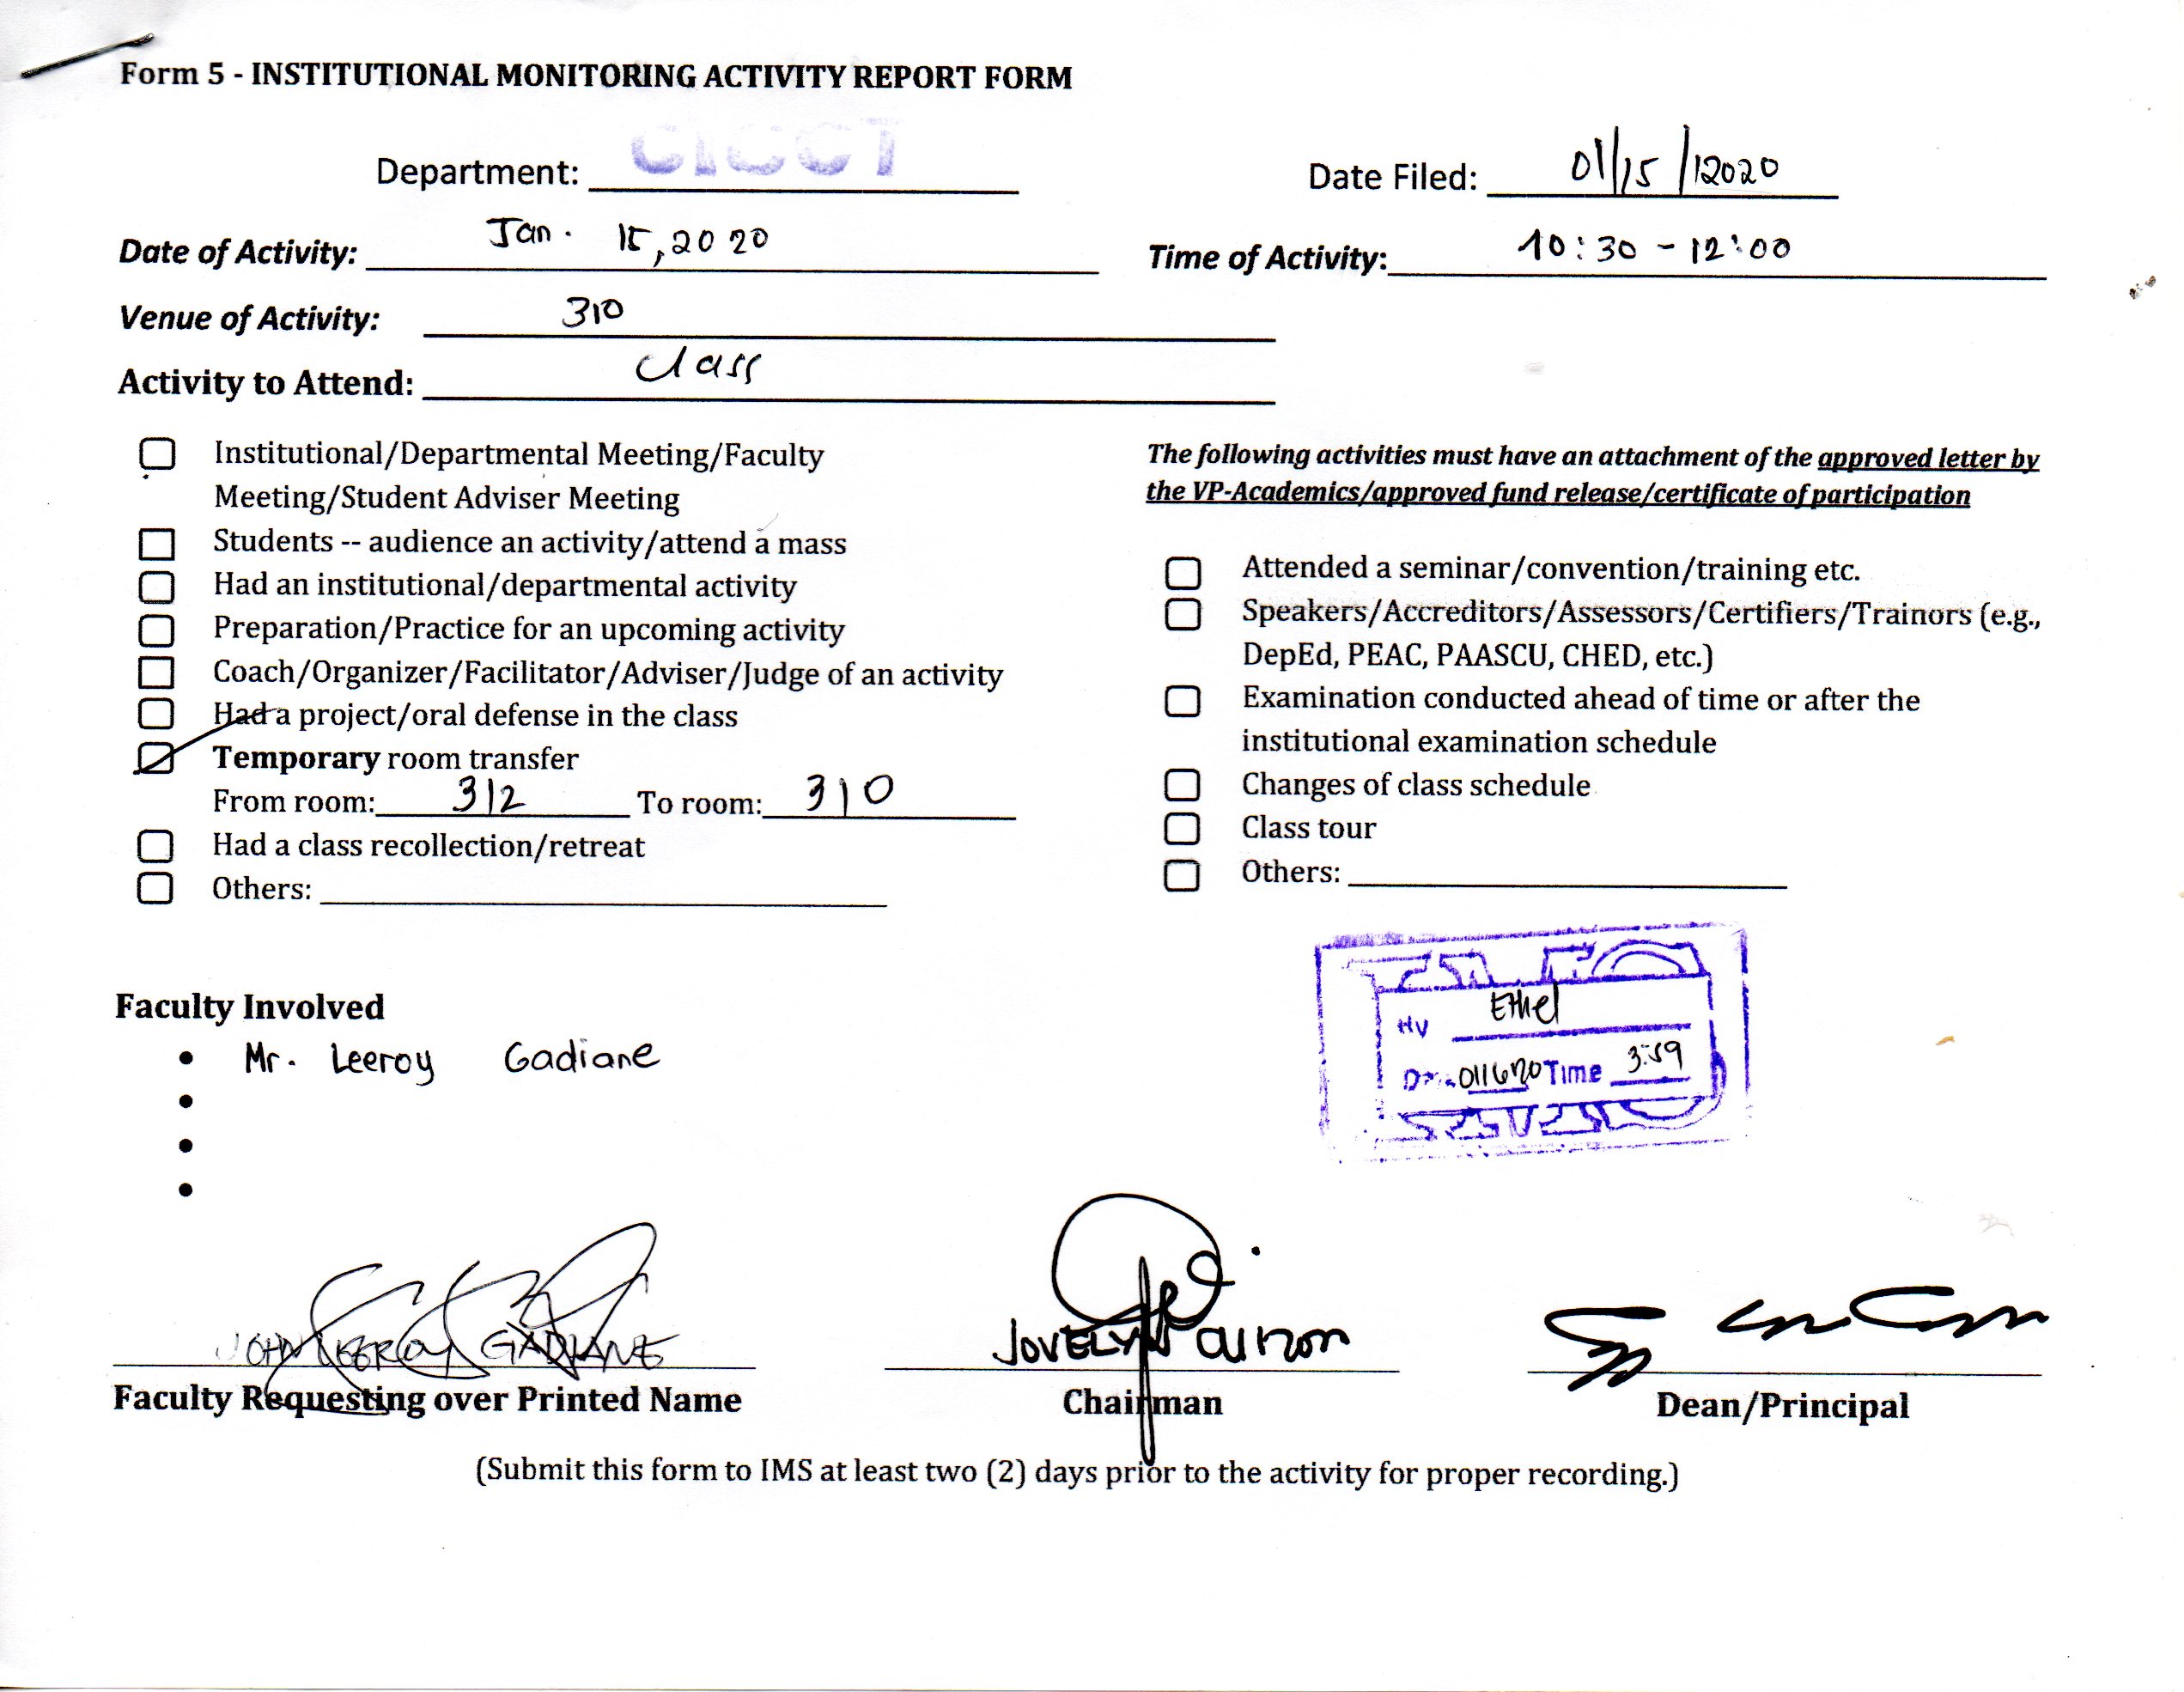 Form 5 - INSTITUTIONAL MONITORING ACTIVITY REPORT FORM
Department: CICCT
Date Filed: 01/15/2020
Date of Activity: Jan. 15, 2020
Time of Activity: 10:30 - 12:00
Venue of Activity: 310
Activity to Attend: class
Institutional/Departmental Meeting/Faculty
Meeting/Student Adviser Meeting
Students -- audience an activity/attend a mass
Had an institutional/departmental activity
Preparation/Practice for an upcoming activity
Coach/Organizer/Facilitator/Adviser/Judge of an activity
Had a project/oral defense in the class
Temporary room transfer
From room: 312 To room: 310
Had a class recollection/retreat
Others:
The following activities must have an attachment of the approved letter by
the VP-Academics/approved fund release/certificate of participation
Attended a seminar/convention/training etc.
Speakers/Accreditors/Assessors/Certifiers/Trainors (e.g.,
DepEd, PEAC, PAASCU, CHED, etc.)
Examination conducted ahead of time or after the
institutional examination schedule
Changes of class schedule
Class tour
Others:
Ethel
Time 3:59
Faculty Involved
• Mr. Leeroy Gadiane
•
•
•
JOHN LEEROY GADIANE
JOVELYN
Faculty Requesting over Printed Name
Chairman
Dean/Principal
(Submit this form to IMS at least two (2) days prior to the activity for proper recording.)